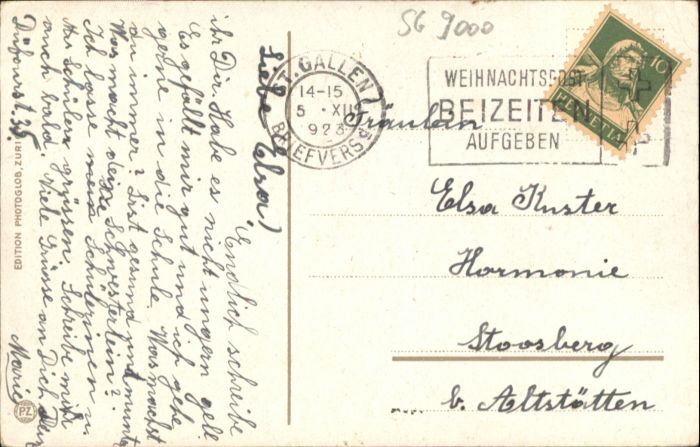 SG 9000
ST. GALLEN 1
14-15
5. XII.
923
BRIEFVERSD
WEIHNACHTSPOST
BEIZEITEN
AUFGEBEN
10
HELVETIA
Fräulein
Elsa Kuster
Harmonie
Stoosberg
b. Altstätten
Liebe Elsa!
Endlich schreibe
ich Dir. Habe es nicht ungern geh.
Es gefällt mir gut und ich gehe
gerne in die Schule. Was machst
du immer? Bist gesund und munter
Was macht dein Schwesterlein?
Ich lasse meine Schülerinnen u
Schülern grüssen. Schreibe mir
auch bald. Viele Grüsse an Dich
Dufourst. 35.
Marie
EDITION PHOTOGLOB, ZÜRI
PZ